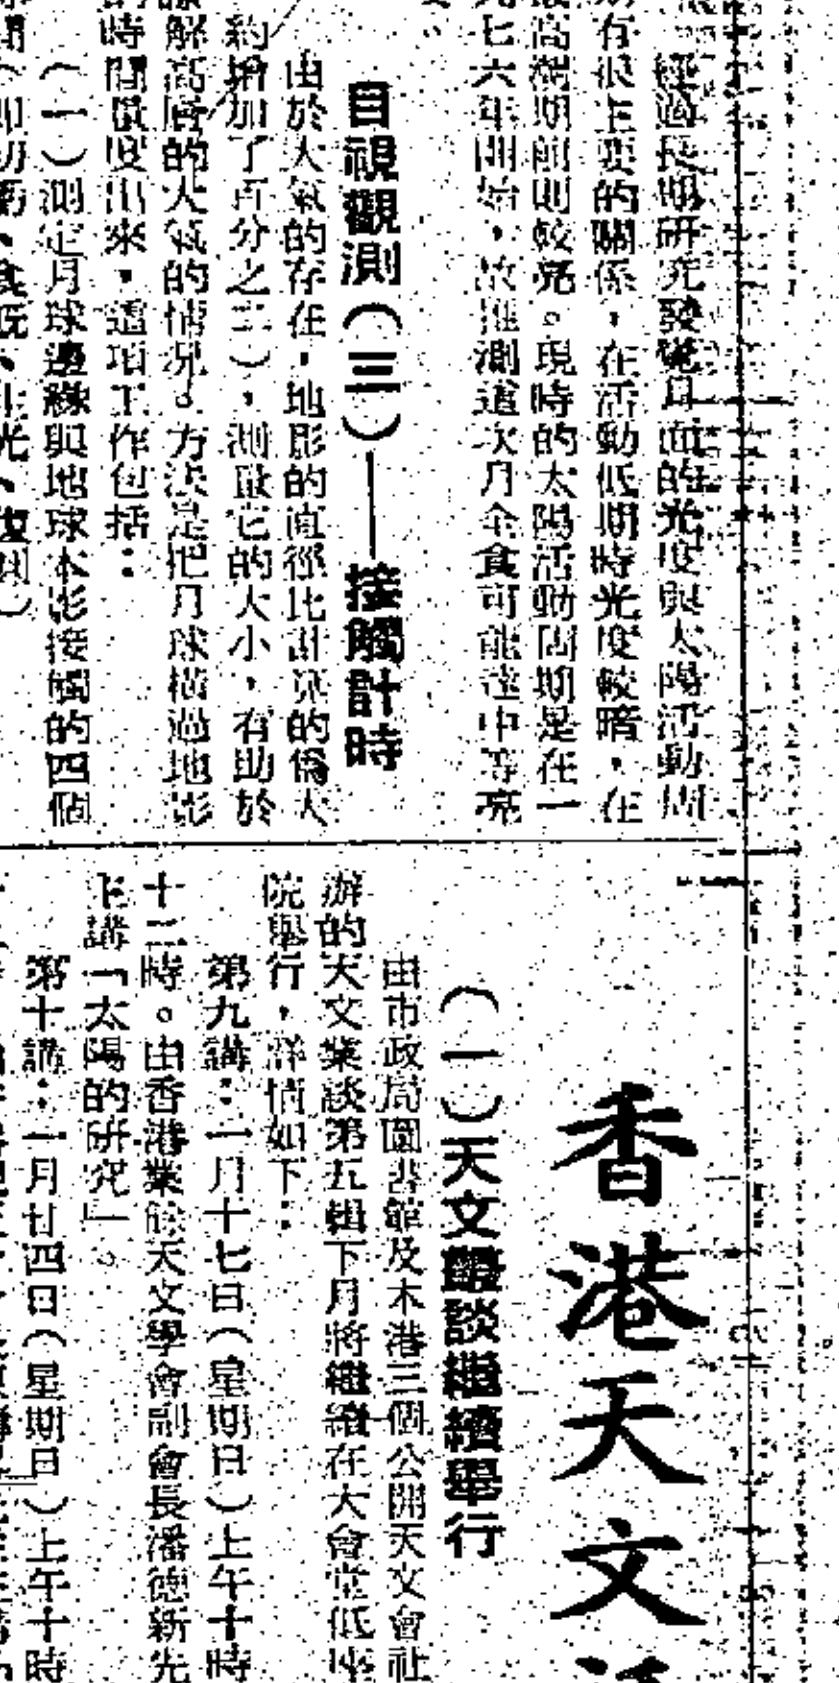 經過長期研究發覺月面的光度與太陽活動周
有很主要的關係，在活動低期時光度較暗，在
高潮期前則較亮。現時的太陽活動周期是在一
七六年開始，故推測這次月全食可能達中等亮
目視觀測（三）——接觸計時
由於大氣的存在，地影的直徑比計算的偽大
約增加了百分之二），測量它的大小，有助於
解高層的大氣的情況。方法是把月球橫過地影
時間量度出來，這項工作包括：
（一）測定月球邊緣與地球本影接觸的四個
（即初虧、食既、生光、復圓）
香港天文
（一）天文叢談繼續舉行
由市政局圖書館及本港三個公開天文會社
辦的天文叢談第五輯下月將繼續在大會堂低座
院舉行，詳情如下：
第九講：一月十七日（星期日）上午十時
十二時。由香港業餘天文學會副會長潘德新先
主講「太陽的研究」。
第十講：一月廿四日（星期日）上午十時